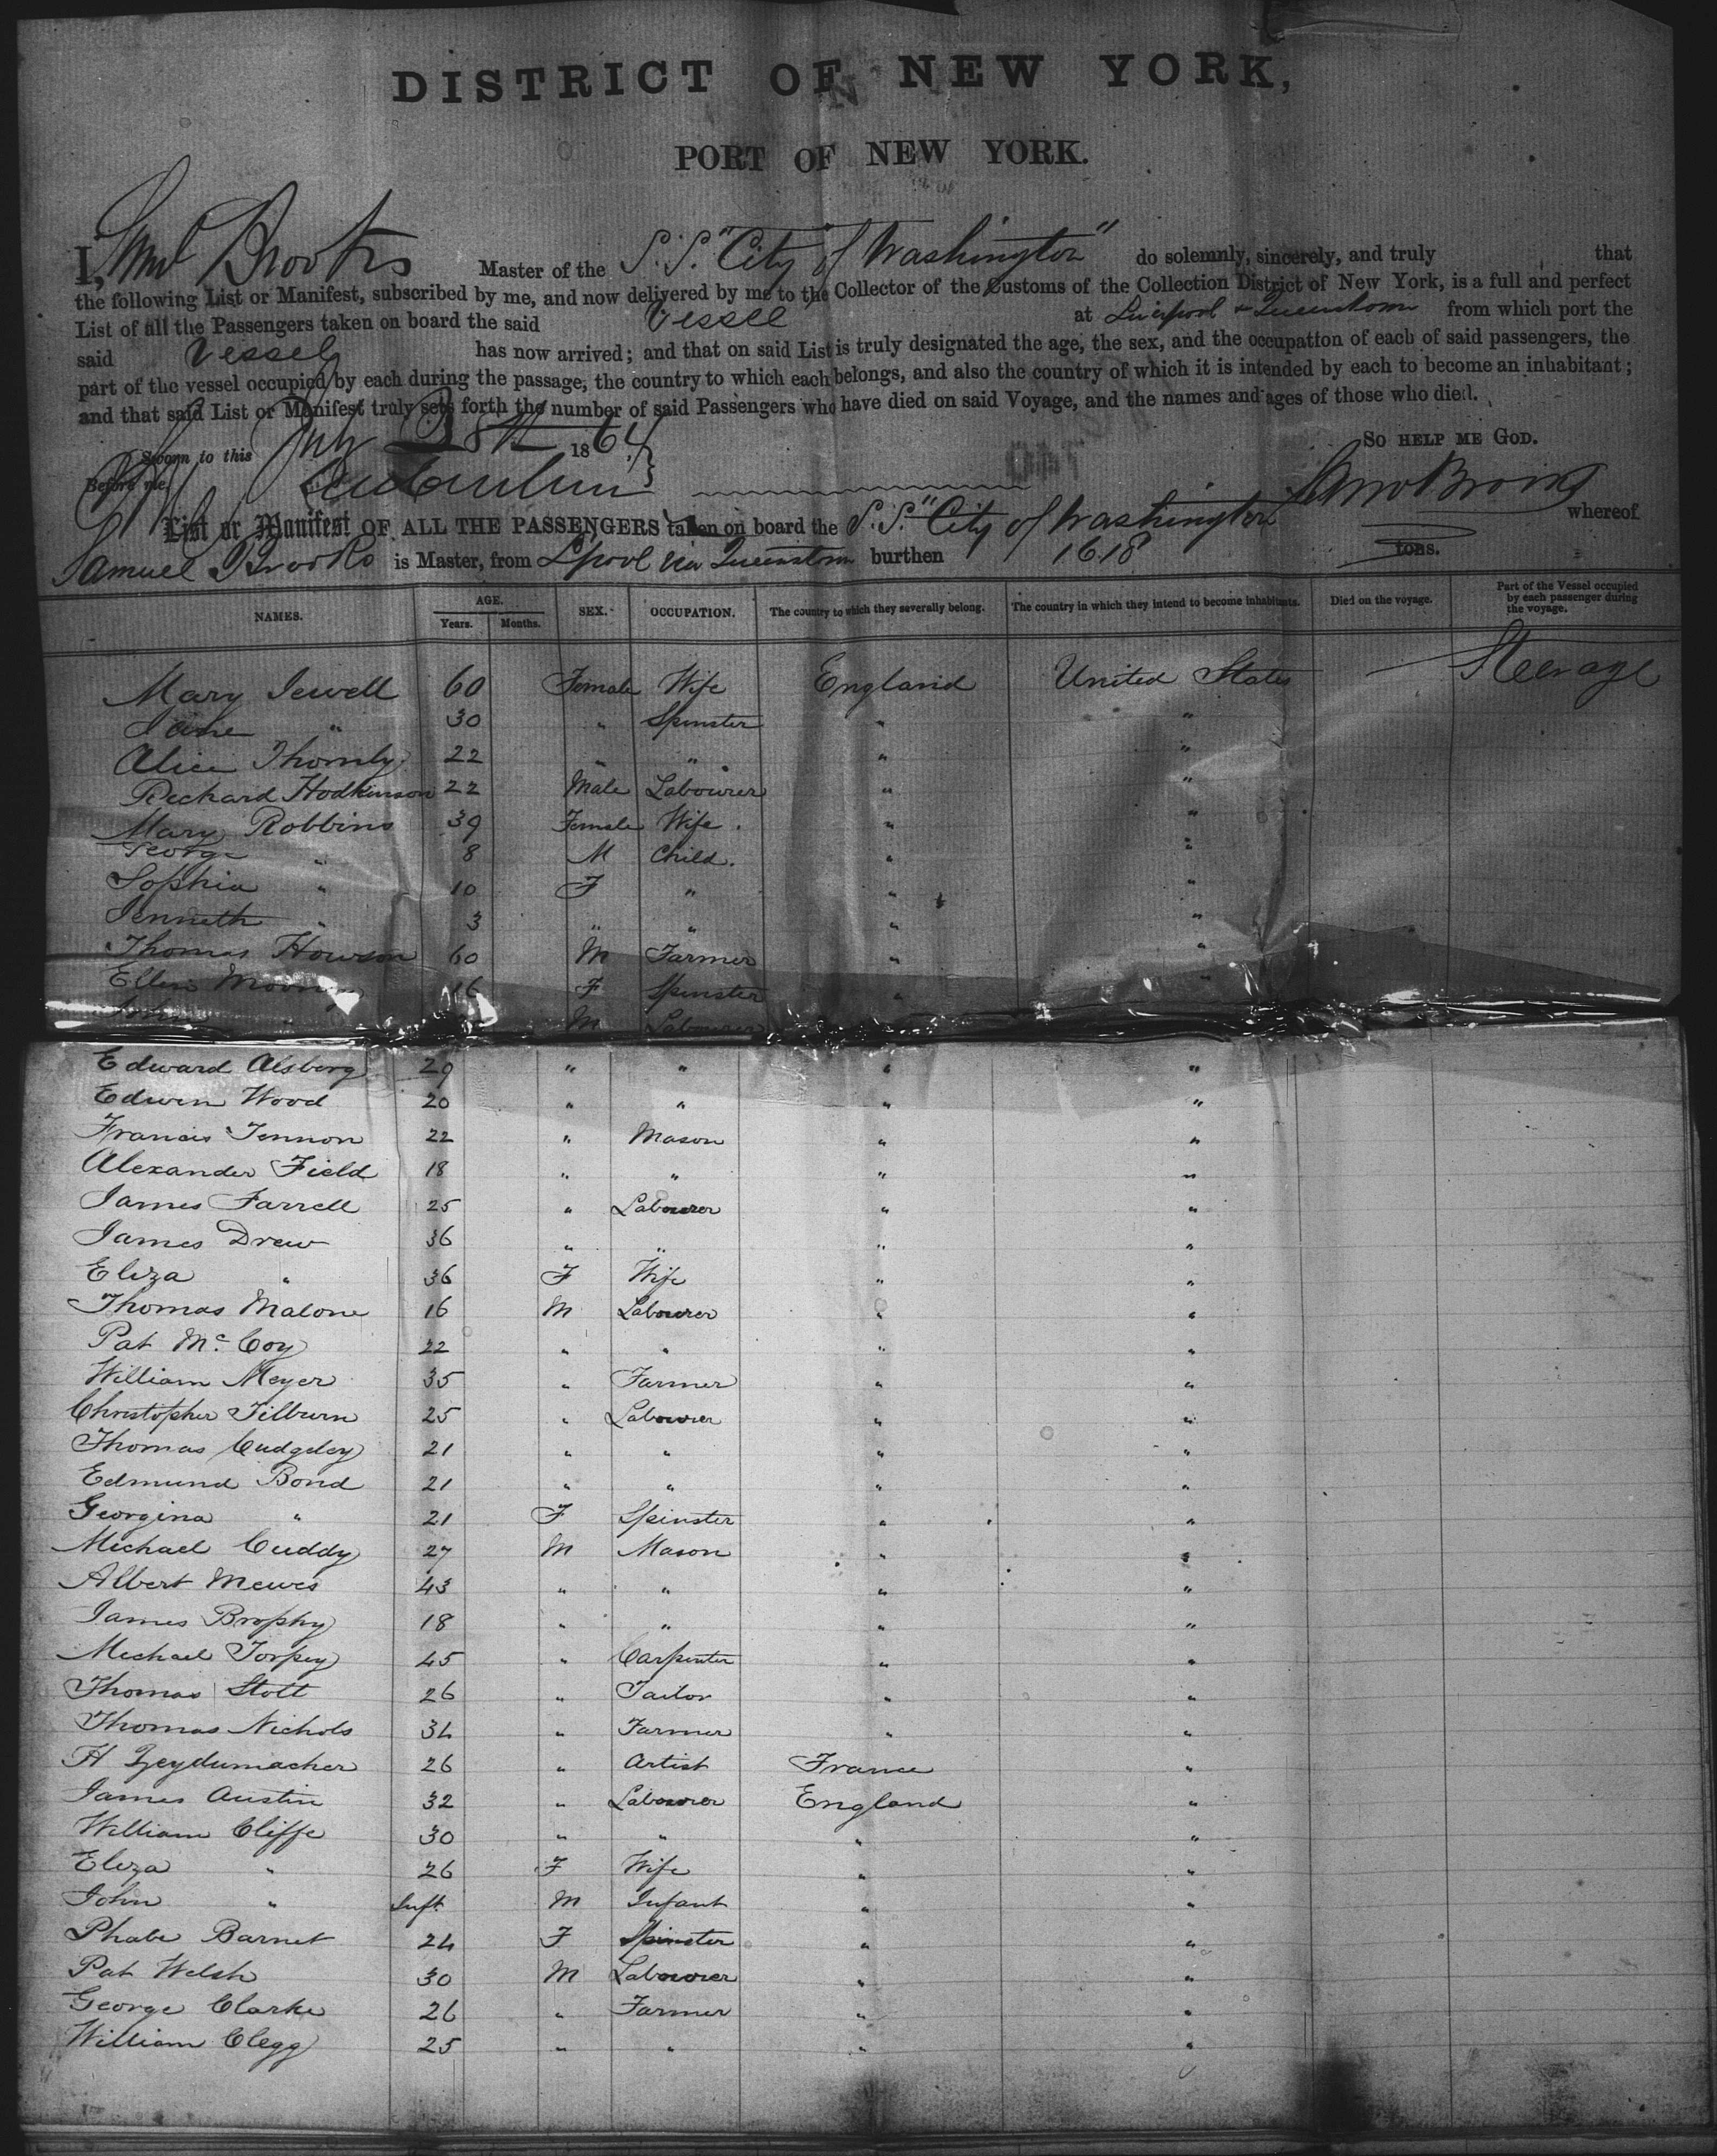 DISTRICT OF NEW YORK,
PORT OF NEW YORK.
I, Saml Brooks Master of the S.S. "City of Washington" do solemnly, sincerely, and truly that
the following List or Manifest, subscribed by me, and now delivered by me to the Collector of the Customs of the Collection District of New York, is a full and perfect
List of all the Passengers taken on board the said Vessel at Liverpool & Queenstown from which port the
said Vessel has now arrived; and that on said List is truly designated the age, the sex, and the occupation of each of said passengers, the
part of the vessel occupied by each during the passage, the country to which each belongs, and also the country of which it is intended by each to become an inhabitant;
and that said List or Manifest truly sets forth the number of said Passengers who have died on said Voyage, and the names and ages of those who died.
SO HELP ME GOD.
Sworn to this July 1864
Before me
Saml Brooks
List or Manifest OF ALL THE PASSENGERS taken on board the S.S. "City of Washington whereof
Samuel Brooks is Master, from Lpool via Queenstown burthen 1618 tons.
NAMES. AGE. Years. Months. SEX. OCCUPATION. The country to which they severally belong. The country in which they intend to become inhabitants. Died on the voyage. Part of the Vessel occupied by each passenger during the voyage.
Mary Jewell 60 Female Wife England United States — Steerage
Jane " 30 " Spinster " "
Alice Thornly 22 " " " "
Richard Hodkinson 22 Male Labourer " "
Mary Robbins 39 Female Wife. " "
George " 8 M Child. " "
Sophia " 10 F " " "
Jenneth " 3 " " " "
Thomas Howson 60 M Farmer " "
Ellen 16 F Spinster " "
John M Labourer
Edward Alsberg 29 " " " "
Edwin Wood 20 " " " "
Francis Tennon 22 " Mason " "
Alexander Field 18 " " " "
James Farrell 25 " Labourer " "
James Drew 36 " " " "
Eliza " 36 F Wife " "
Thomas Malone 16 M Labourer " "
Pat McCoy 22 " " " "
William Meyer 35 " Farmer " "
Christopher Tilburn 25 " Labourer " "
Thomas Cudgeley 21 " " " "
Edmund Bond 21 " " " "
Georgina " 21 F Spinster " "
Michael Cuddy 27 M Mason " "
Albert Mewes 43 " " " "
James Brophy 18 " " " "
Michael Torpey 45 " Carpenter " "
Thomas Stott 26 " Tailor " "
Thomas Nichols 34 " Farmer " "
H Zeydumacher 26 " Artist France "
James Austin 32 " Labourer England "
William Cliffe 30 " " " "
Eliza " 26 F Wife " "
John " Inft. M Infant " "
Phabe Barnet 24 F Spinster " "
Pat Welsh 30 M Labourer " "
George Clarke 26 " Farmer " "
William Clegg 25 " " " "